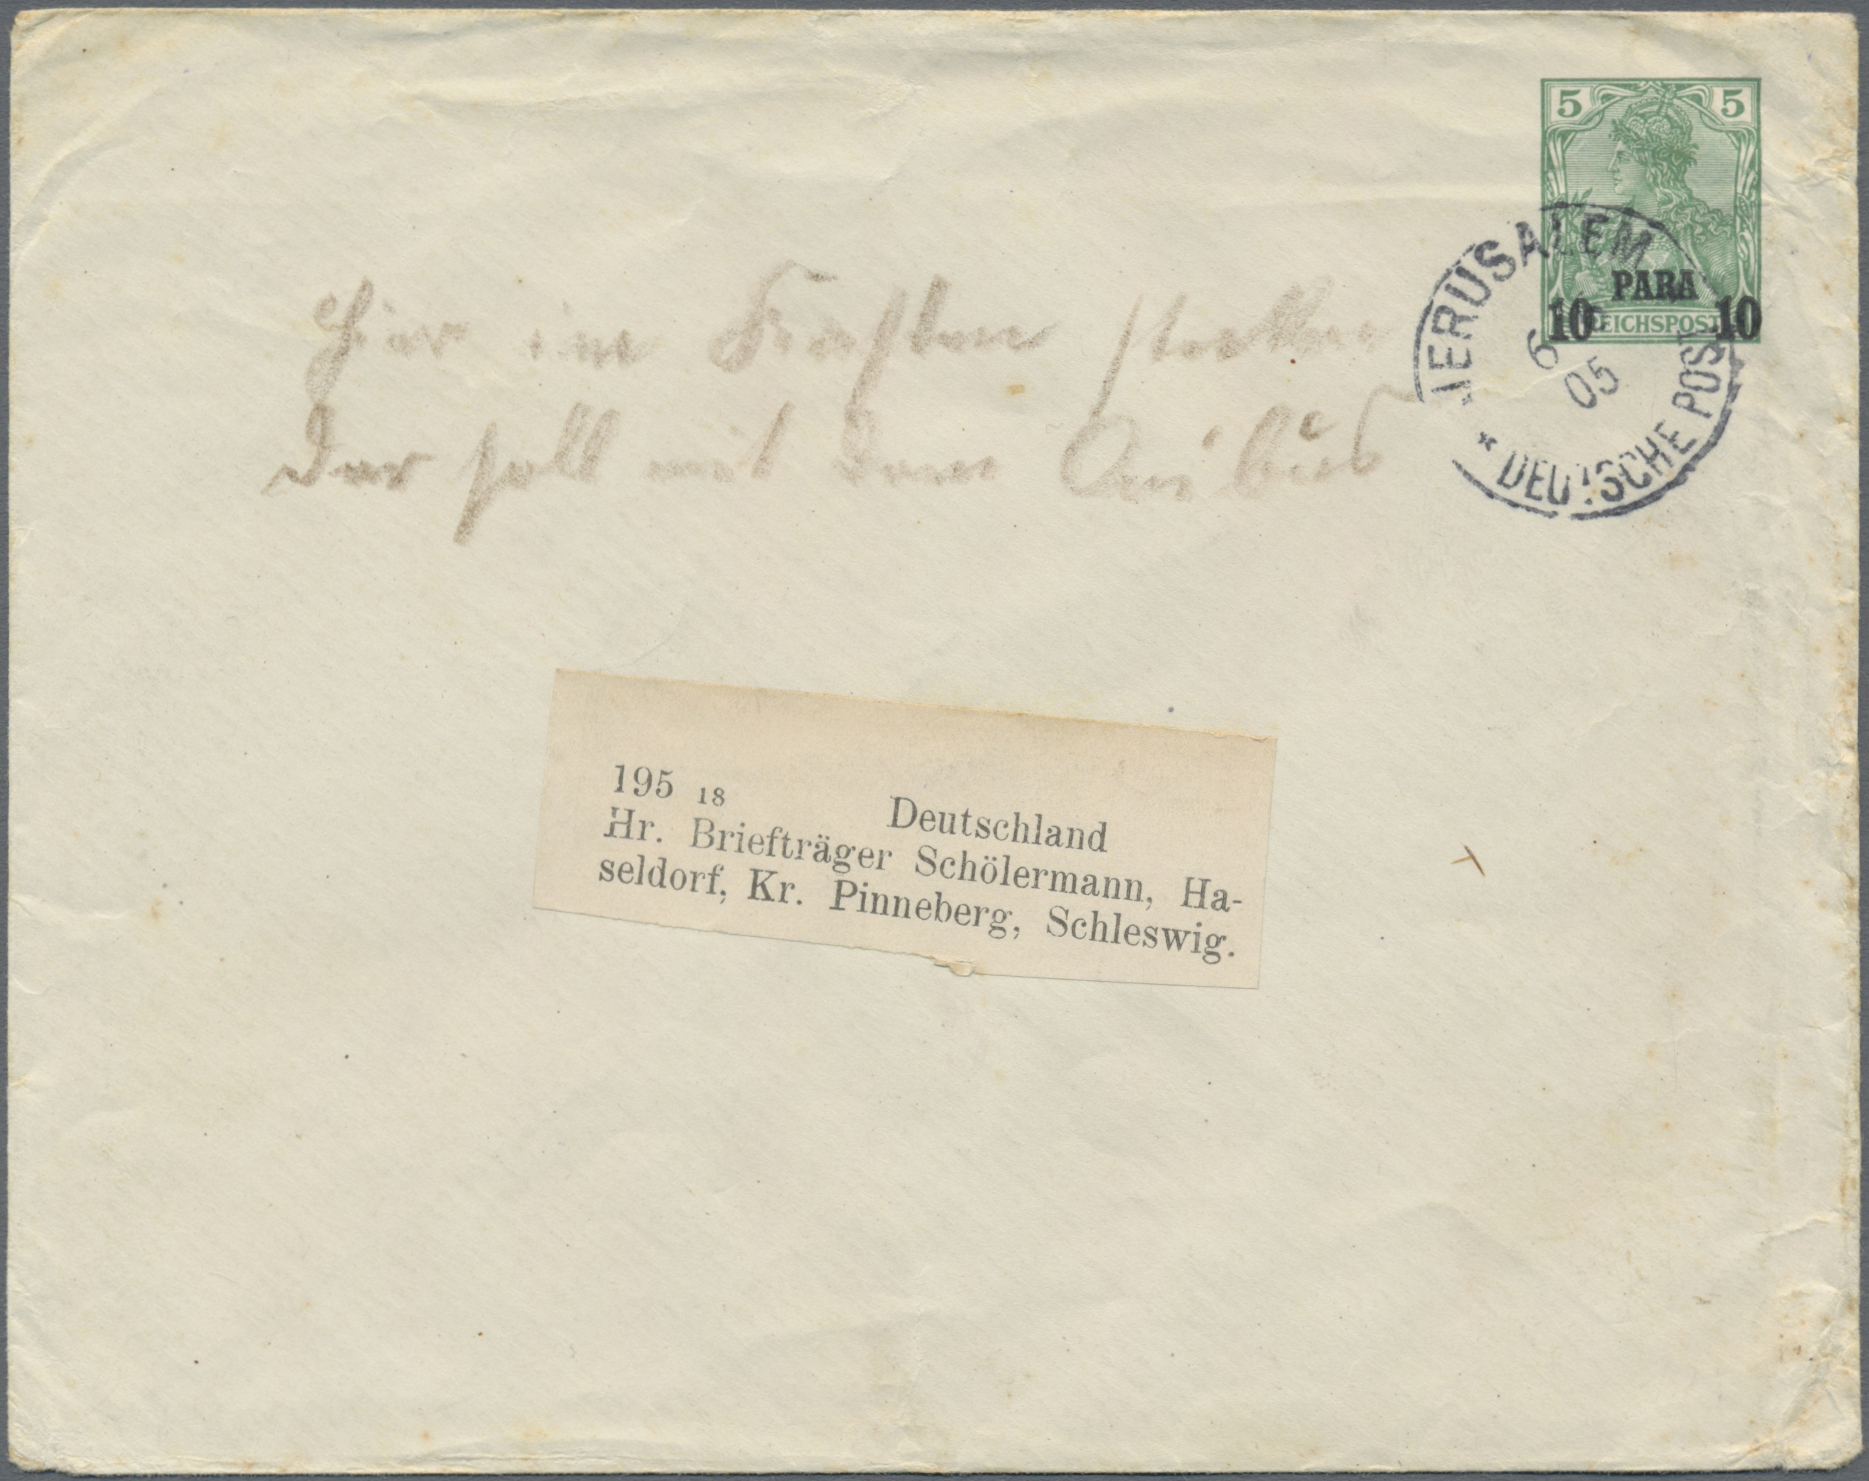 5 5
PARA
10 10
REICHSPOST
JERUSALEM
6
05
* DEUTSCHE POST
Hier im Kasten stecken
Der soll mit dem
195 18 Deutschland
Hr. Briefträger Schölermann, Ha-
seldorf, Kr. Pinneberg, Schleswig.